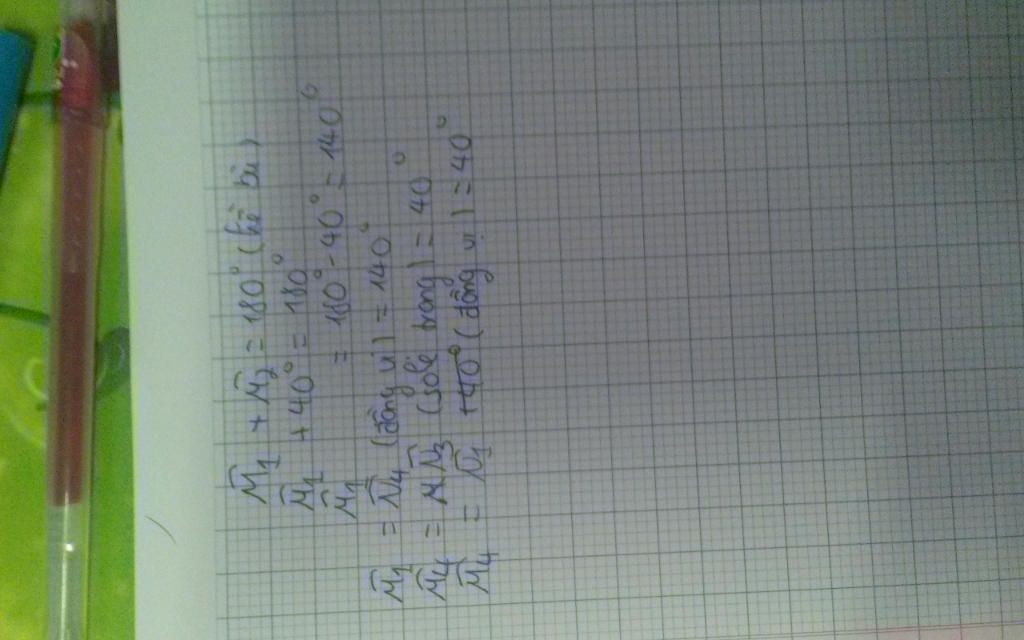 M̂₁ + M̂₂ = 180° (kề bù)
M̂₁ + 40° = 180°
M̂₁ = 180° - 40° = 140°
M̂₁ = N̂₄ (đồng vị) = 140°
M̂₄ = N̂₃ (sole trong) = 40°
M̂₄ = N̂₁ (đồng vị) = 40°